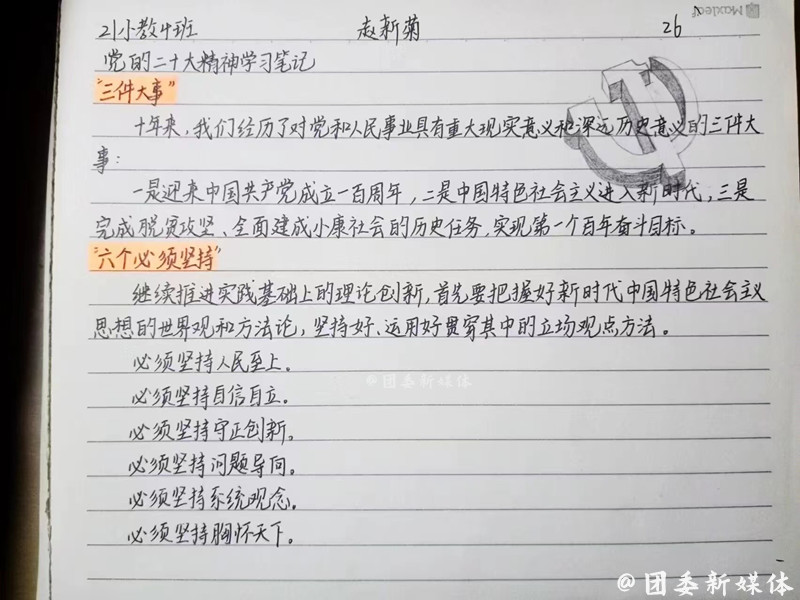 Maxleaf
21小教4班 赵新菊 26
党的二十大精神学习笔记
"三件大事"
十年来，我们经历了对党和人民事业具有重大现实意义和深远历史意义的三件大
事：
一是迎来中国共产党成立一百周年，二是中国特色社会主义进入新时代，三是
完成脱贫攻坚、全面建成小康社会的历史任务，实现第一个百年奋斗目标。
"六个必须坚持"
继续推进实践基础上的理论创新，首先要把握好新时代中国特色社会主义
思想的世界观和方法论，坚持好、运用好贯穿其中的立场观点方法。
必须坚持人民至上。
@团委新媒体
必须坚持自信自立。
必须坚持守正创新。
必须坚持问题导向。
必须坚持系统观念。
必须坚持胸怀天下。
@团委新媒体